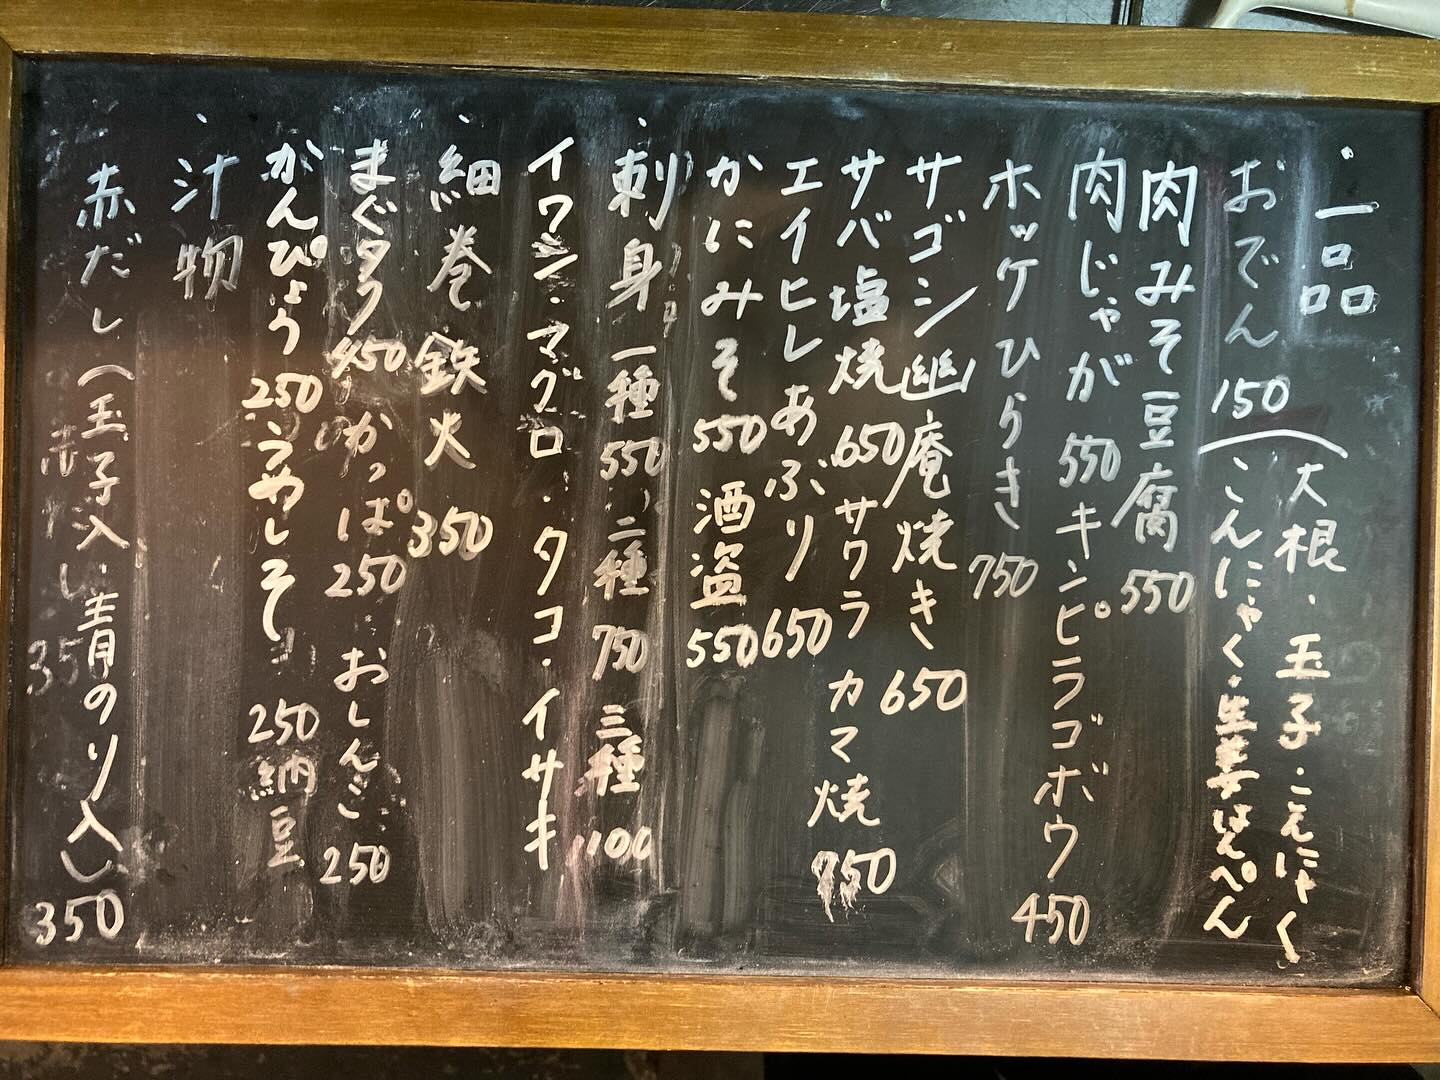 ・一品
おでん 150（大根・玉子・こんにゃく
こんにゃく・生姜はんぺん
肉みそ豆腐 550
肉じゃが 550 キンピラゴボウ 450
ホッケひらき 750
サゴシ幽庵焼き 650
サバ塩焼 650 サワラカマ焼 750
エイヒレあぶり 650
かにみそ 550 酒盗 550
・刺身 一種 550 二種 750 三種 1100
イワシ・マグロ・タコ・イサキ
・細巻 鉄火 350
まぐタク 450 かっぱ 250 おしんこ 250
かんぴょう 250 うめしそ 250 納豆
・汁物
赤だし（玉子入・青のり入） 350